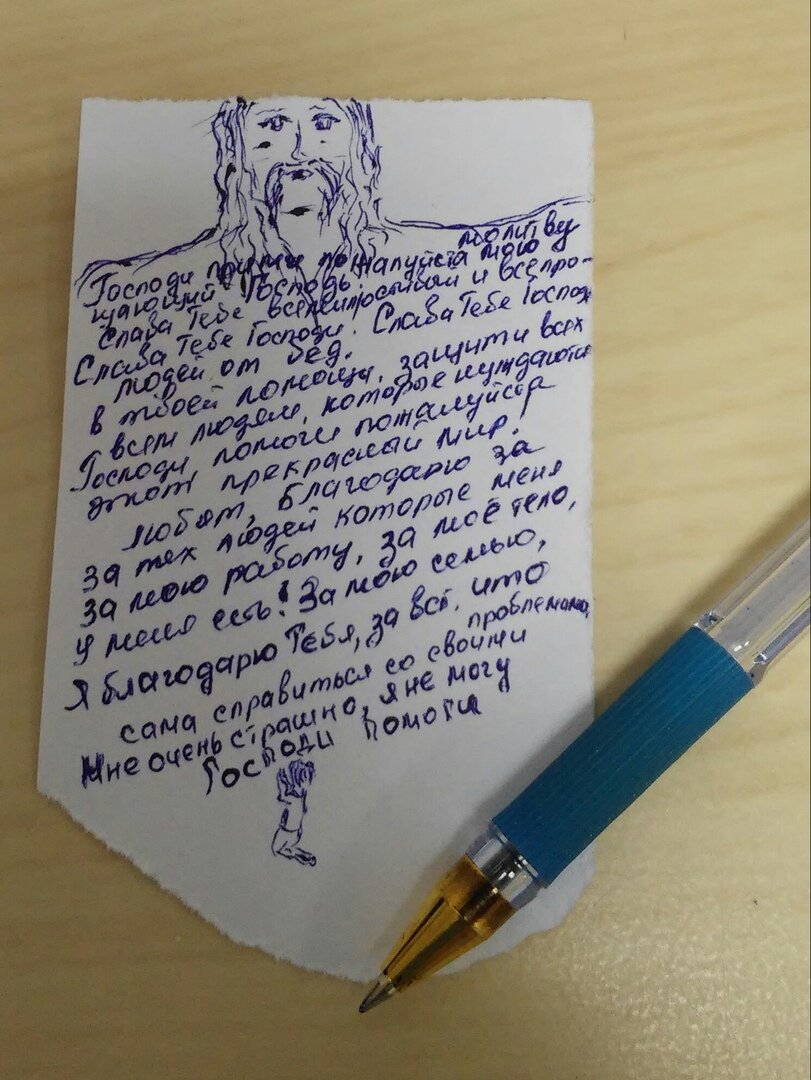 Господи помоги
Мне очень страшно, я не могу
сама справиться со своими
проблемами.
Я благодарю Тебя, за всё, что
у меня есть! За мою семью,
за мою работу, за моё тело,
за тех людей которые меня
любят, благодарю за
этот прекрасный мир!
Господи, помоги пожалуйста
всем людям, которые нуждаются
в твоей помощи, защити всех
людей от бед.
Слава Тебе Господи. Слава Тебе Господи
Слава Тебе всемилостивый и всепро-
щающий Господь,
Господи прими пожалуйста мою
молитву